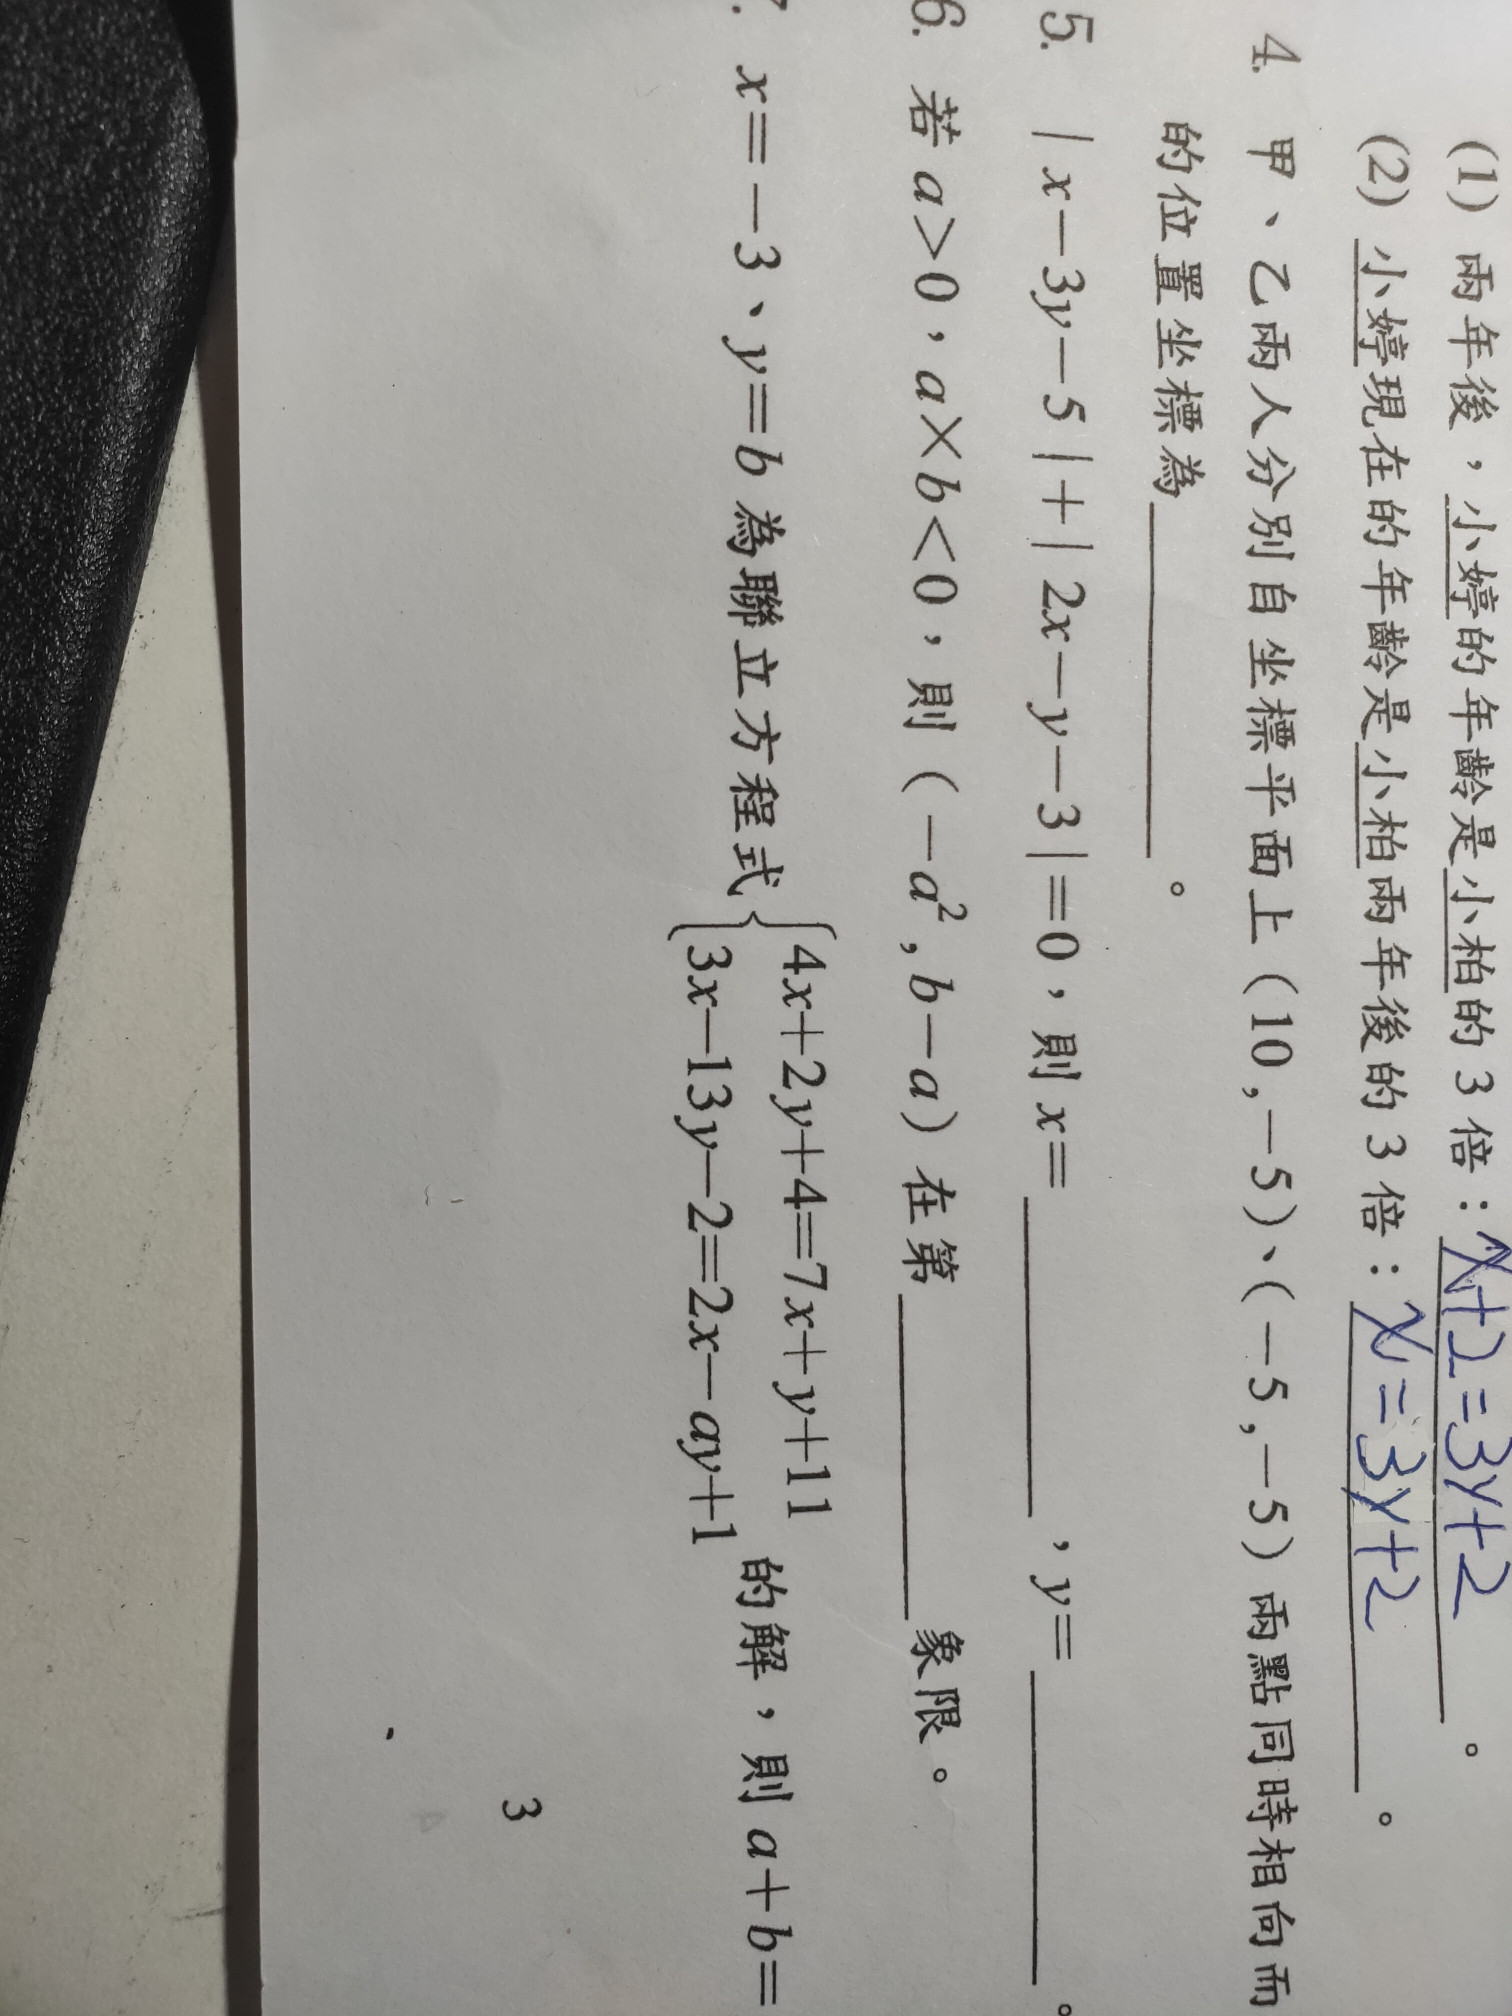 (1) 兩年後，小婷的年齡是小柏的 3 倍：x+2=3y+2。
(2) 小婷現在的年齡是小柏兩年後的 3 倍：x=3y+2。
4. 甲、乙兩人分別自坐標平面上（10,－5）、（－5,－5）兩點同時相向而
的位置坐標為＿＿＿＿。
5. |x－3y－5|＋|2x－y－3|＝0，則 x＝＿＿＿＿，y＝＿＿＿＿。
6. 若 a＞0，a×b＜0，則（－a²,b－a）在第＿＿＿＿象限。
4x+2y+4=7x+y+11
. x＝－3、y＝b 為聯立方程式{ 的解，則 a＋b＝
3x－13y－2=2x－ay+1
3